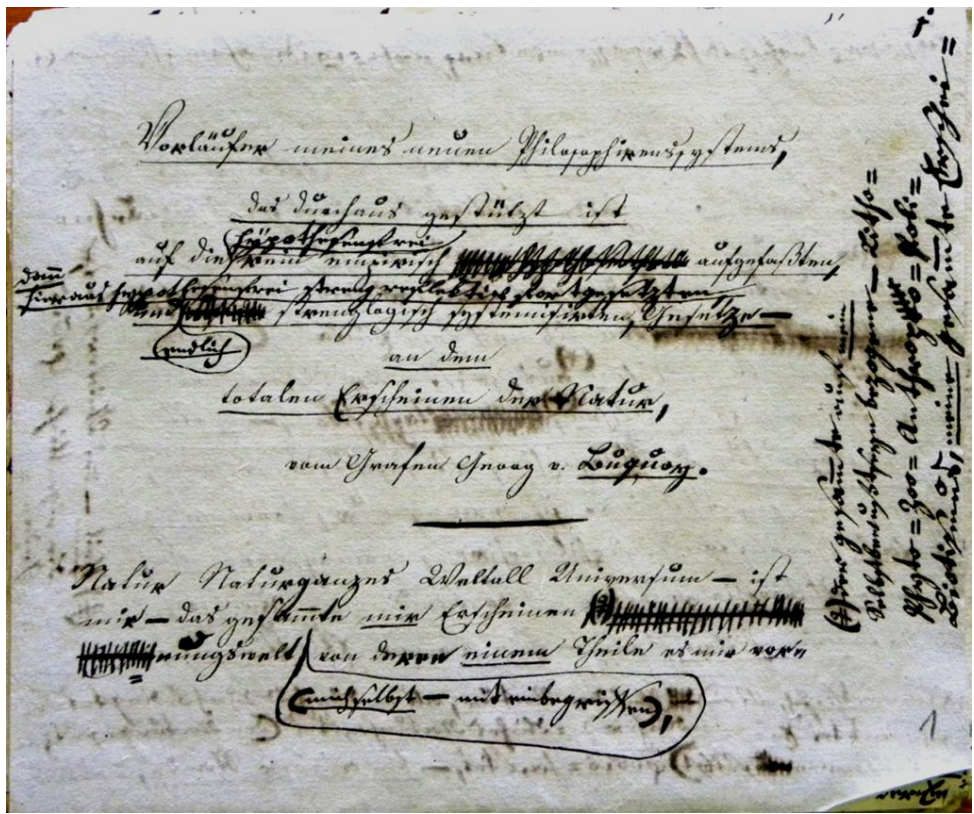 Vorläufer meines neuen Philosophirenssystems,
das durchaus gestützt ist
hypothesenfrei
auf die rein empirisch aufgefaßten,
dann
hieraus hypothesenfrei streng reflektiv fortgesetzten
und strenglogisch systemisirten, Gesetze —
endlich
an dem
totalen Erscheinen der Natur,
vom Grafen Georg v. Buquoy.
Natur Naturganzes Weltall Universum — ist
mir — das gesam̅te mir Erscheinen
nungswelt von deren einem Theile es mir vor=
(mich selbst — mit einbegriffen),
der gesam̅te auf mein
Selbstbewußtseyn bezogene — Litho=
Phyto= Zoo= Anthropo=
Biotismus, meine gesam̅te Erschei=
1